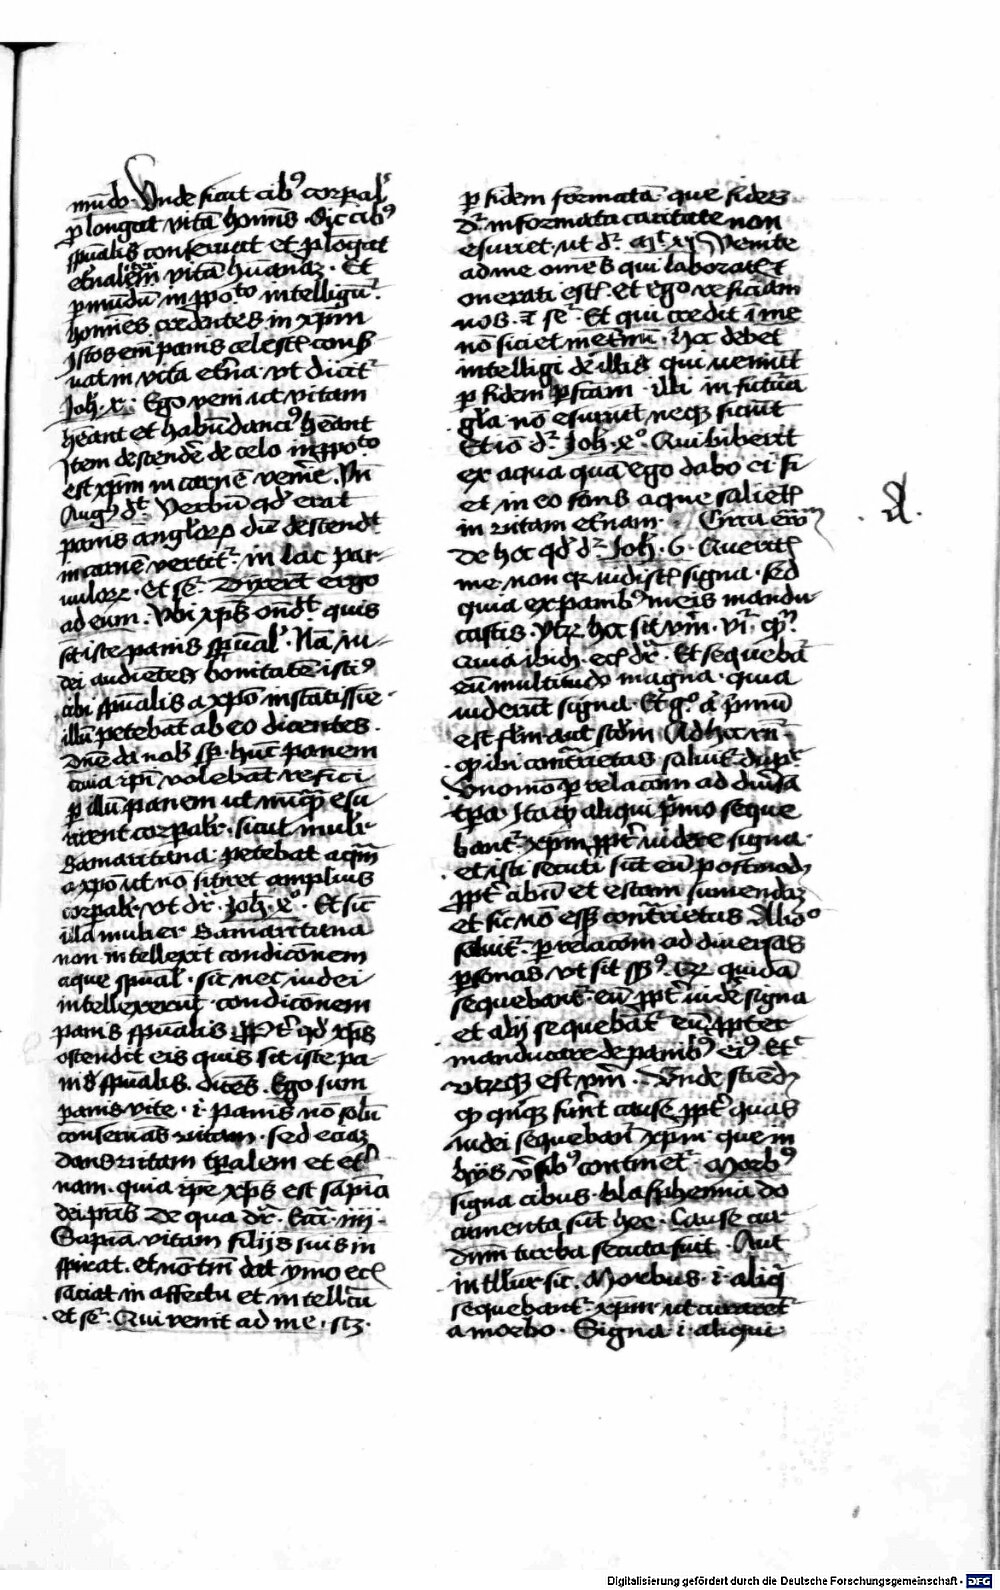 mūdo. Unde sicut cibꝰ corꝑal'
ꝓlongat vitā hoīnis. Sic cibꝰ
spūalis conseruat et ꝓlōgat
et̄nalem vitā hūanaꝫ. Et
ꝑ mūdū in ꝓpoīto intelligūt̄
hoīnes credentes in xp̄m
Istos em̄ panis celestꝭ conß
uat in vita et̄na vt dicit̄
Joh̄. x. Ego veni ut vitam
hēant et habūdanciꝰ hēant
Item descendē de celo in ꝓpoīto
est xp̄m in carnē venīre. Vn̄
Augꝰ dt̄. Verbū qd̄ erat
panis angl'oꝝ dū descend̄t
in carnē vertit̄ in lac par-
uuloꝝ. Et se. Dixer̄t ergo
ad eum. Vbi xp̄s ond̄t quis
sit iste panis spūal'. Nā iu-
dei audientes bonitatē istiꝰ
cibi spūalis a xp̄o instātissīe
illū petebāt ab eo dicentes.
Dn̄e da nob̄ sp̄. hūc panem
quia ip̄i volebāt refici
ꝑ illū panem ut nūq̄ꝫ esu
rirent corꝑal'r. sicut mul'r
Samaritana petebat aq̄m
a xp̄o ut nō sitiret amplius
corꝑal'r vt dr̄. Joh̄. xº. Et sic
illa mulier Samaritana
non intellexit condicōnem
aque spūal'. sic nec iudei
intellexerūt condicōnem
panis spūalis ꝓpt̄ qd̄ xp̄s
ostendit eis quis sit iste pa-
nis spūalis. dicēs. Ego sum
panis vite. i. panis nō solū
conseruās vitam. sed eciaꝫ
dans vitam tꝑalem et et̄
nam. quia ip̄e xp̄s est sapīa
dei pr̄is de qua dr̄. Ecc̄i. iiij.
Sapīa vitam filijs suis in
spirat. et nō tm̄ dat ymo ecꝭ
saciat in affectu et intellc̄u
et se. Qui venit ad me. scꝫ.
ꝑ fidem formatā que fides
dr̄ informata caritate non
esuriet. ut dr̄. mt̄. xj. Venite
ad me omēs qui laboratꝭ
onerati estꝭ. et ego reficiam
uos. ⁊ se. Et qui credit ī me
nō siciet in et̄nū. Hoc debet
intelligi de illis qui veniūt
ꝑ fidem ꝑf̄cam. illi in futura
gl̄a nō esuriūt neqꝫ siciūt
Et iō dr̄. Joh̄. xº. Qui biberit
ex aqua quā ego dabo ei fi
et in eo fons aque salietꝭ
in vitam et̄nam. Circa ew̄
De hoc qd̄ dr̄. Joh̄. 6. Querit
me non qꝛ uidistꝭ signa. sed
quia ex panibꝰ meis mandu-
castis. Vtꝝ hoc sit v̄m. vr̄. qꝫ
Quia ibidē ecꝭ dr̄. Et sequebā
eū multitudo magna. quia
uiderūt signa. Et gº ā p̄mū
est fl̄m aut scd̄m. Ad hoc rn̄
qꝫ ibi contrarietas soluit̄ dupͬ
Vno mō ꝑ relacōm ad diū̄sa
tꝑa. Ita qꝫ aliqui p̄mo seque
bant̄ xp̄m ꝓpt̄ uidere signa.
et isti secuti sūt eū postmodū
ꝓpt̄ cibū et escam sumendaꝫ
et sic nō esß contrarietas. Alioº
soluit̄. ꝑ relacōm ad diuersas
ꝑsonas. vt sit ßꝰ. Qꝛ quidā
sequebant̄ eū ꝓpt̄ uidē signa
et alij sequebāt̄ eū ꝓpter
manducare de panibꝰ eiꝰ. Et
utrūqꝫ est v̄m. Unde sciendū
qꝫ qn̄qꝫ fuer̄t cause ꝓpt̄ quas
iudei sequebant̄ xp̄m que in
hijs v̄sibꝰ continet̄. Morbꝰ
signa cibus. blasphemia do
cumenta sūt hec. Cause cur
dn̄m turba secuta fuit. Aut
intll'r sic. Morbus. i. aliq̄
sequebant̄ xp̄m ut curaret̄
a morbo. Signa. i. aliqui
d.
Digitalisierung gefördert durch die Deutsche Forschungsgemeinschaft - DFG